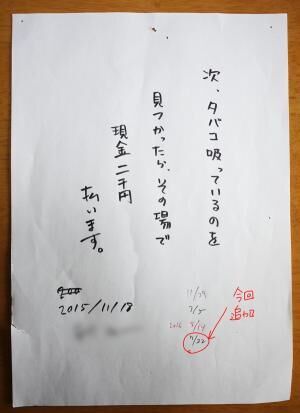 次、タバコ吸っているのを
見つかったら、その場で
現金 二千円
払います。
2015/11/18
11/29
2016 5/14
7/22
今回
追加